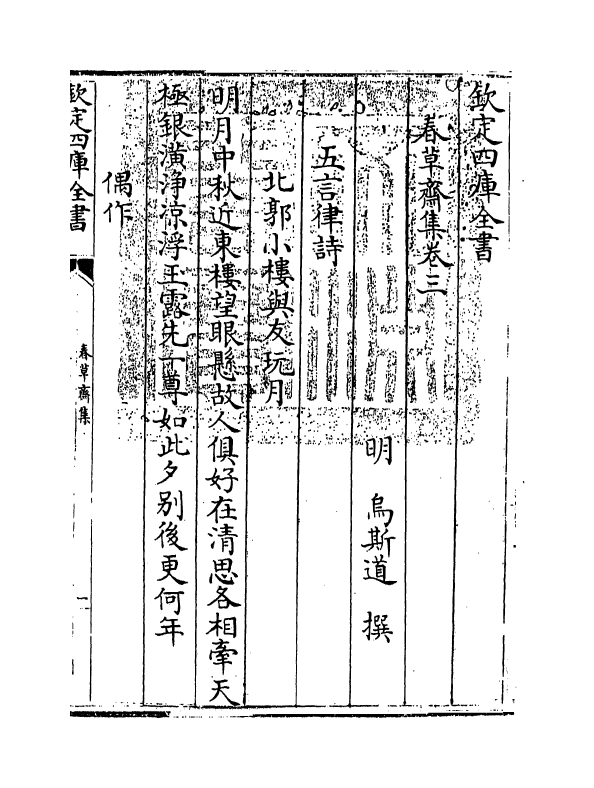 欽定四庫全書
春草齋集卷三
明 烏斯道 撰
五言律詩
北郭小樓與友玩月
明月中秋近東樓望眼懸故人俱好在清思各相牽天
極銀潢浄凉浮玉露先一尊如此夕别後更何年
偶作
欽定四庫全書
春草齋集
一